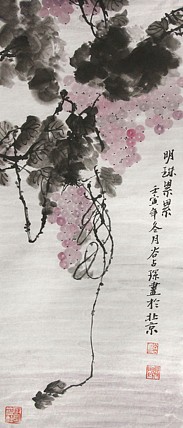 明珠累累
壬寅年冬月岩占琛畫於北京